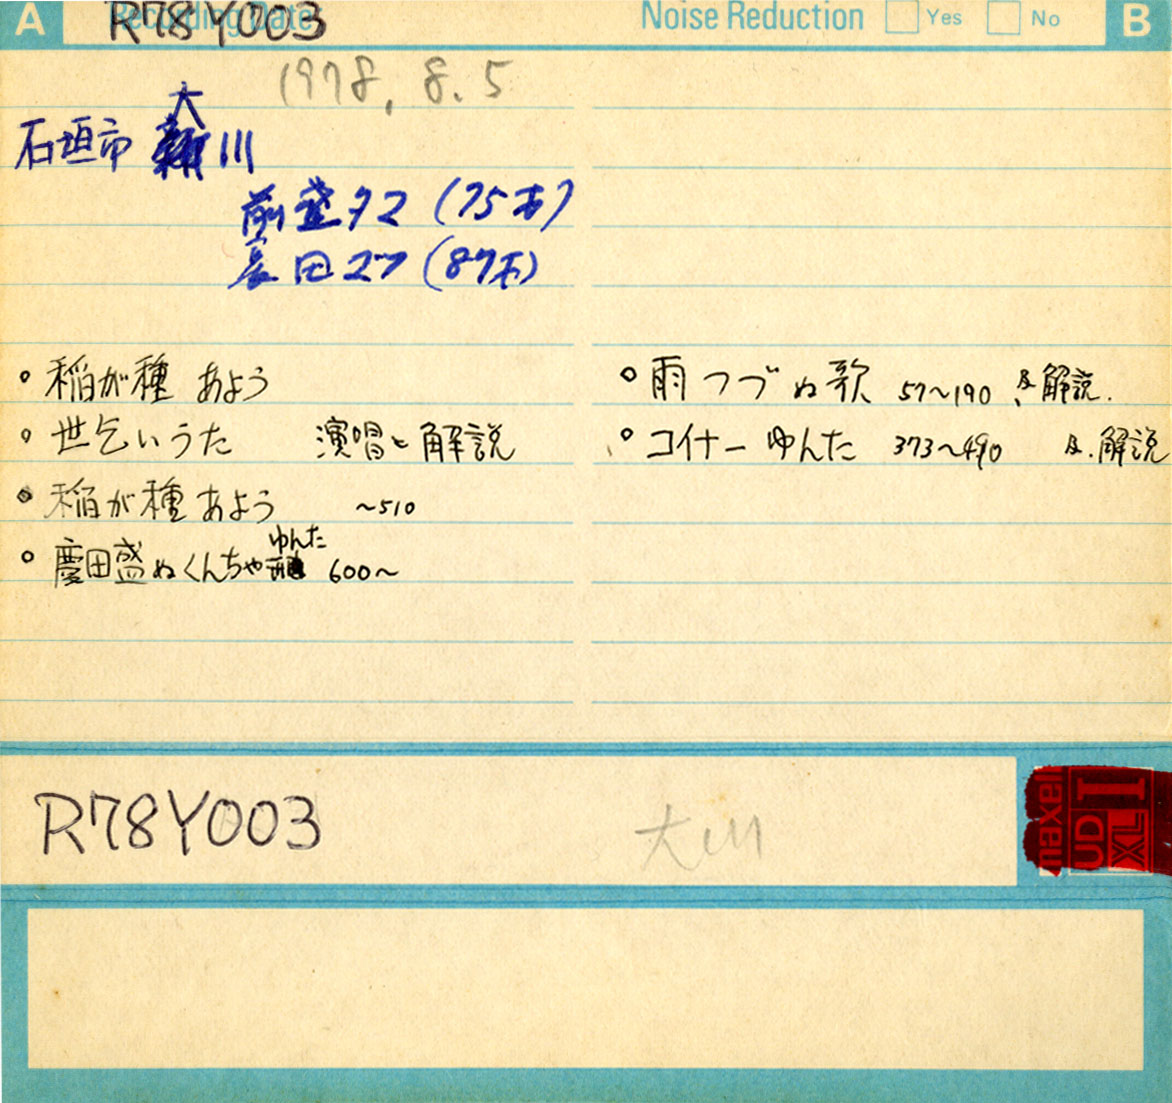 A R78Y003 Recording Date Noise Reduction Yes No B
1978. 8. 5
石垣市 大川
前盛タマ (75才)
長田マツ (87才)
○ 稲が種 あよう
○ 世乞いうた 演唱と解説
○ 稲が種あよう ~510
○ 慶田盛ぬくんちゃーゆんた 600~
○ 雨つづぬ歌 57~190 及解説.
○ コイナーゆんた 373~490 及.解説
R78Y003 大川
maxell UD XL I